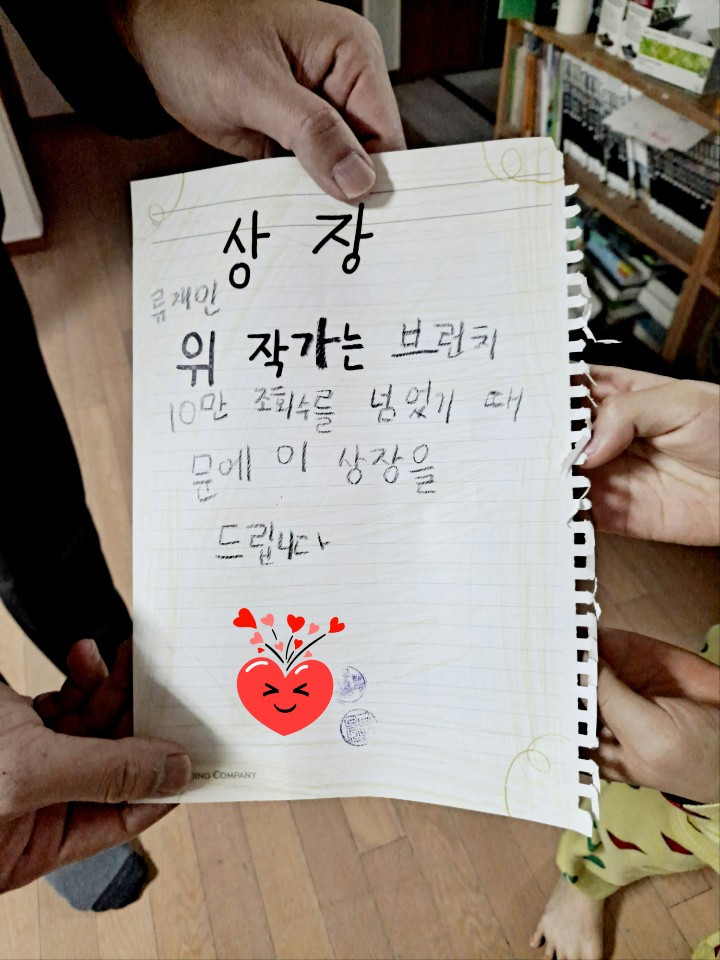 상 장
류재인
위 작가는 브런치
10만 조회수를 넘었기 때
문에 이 상장을
드립니다
ING COMPANY